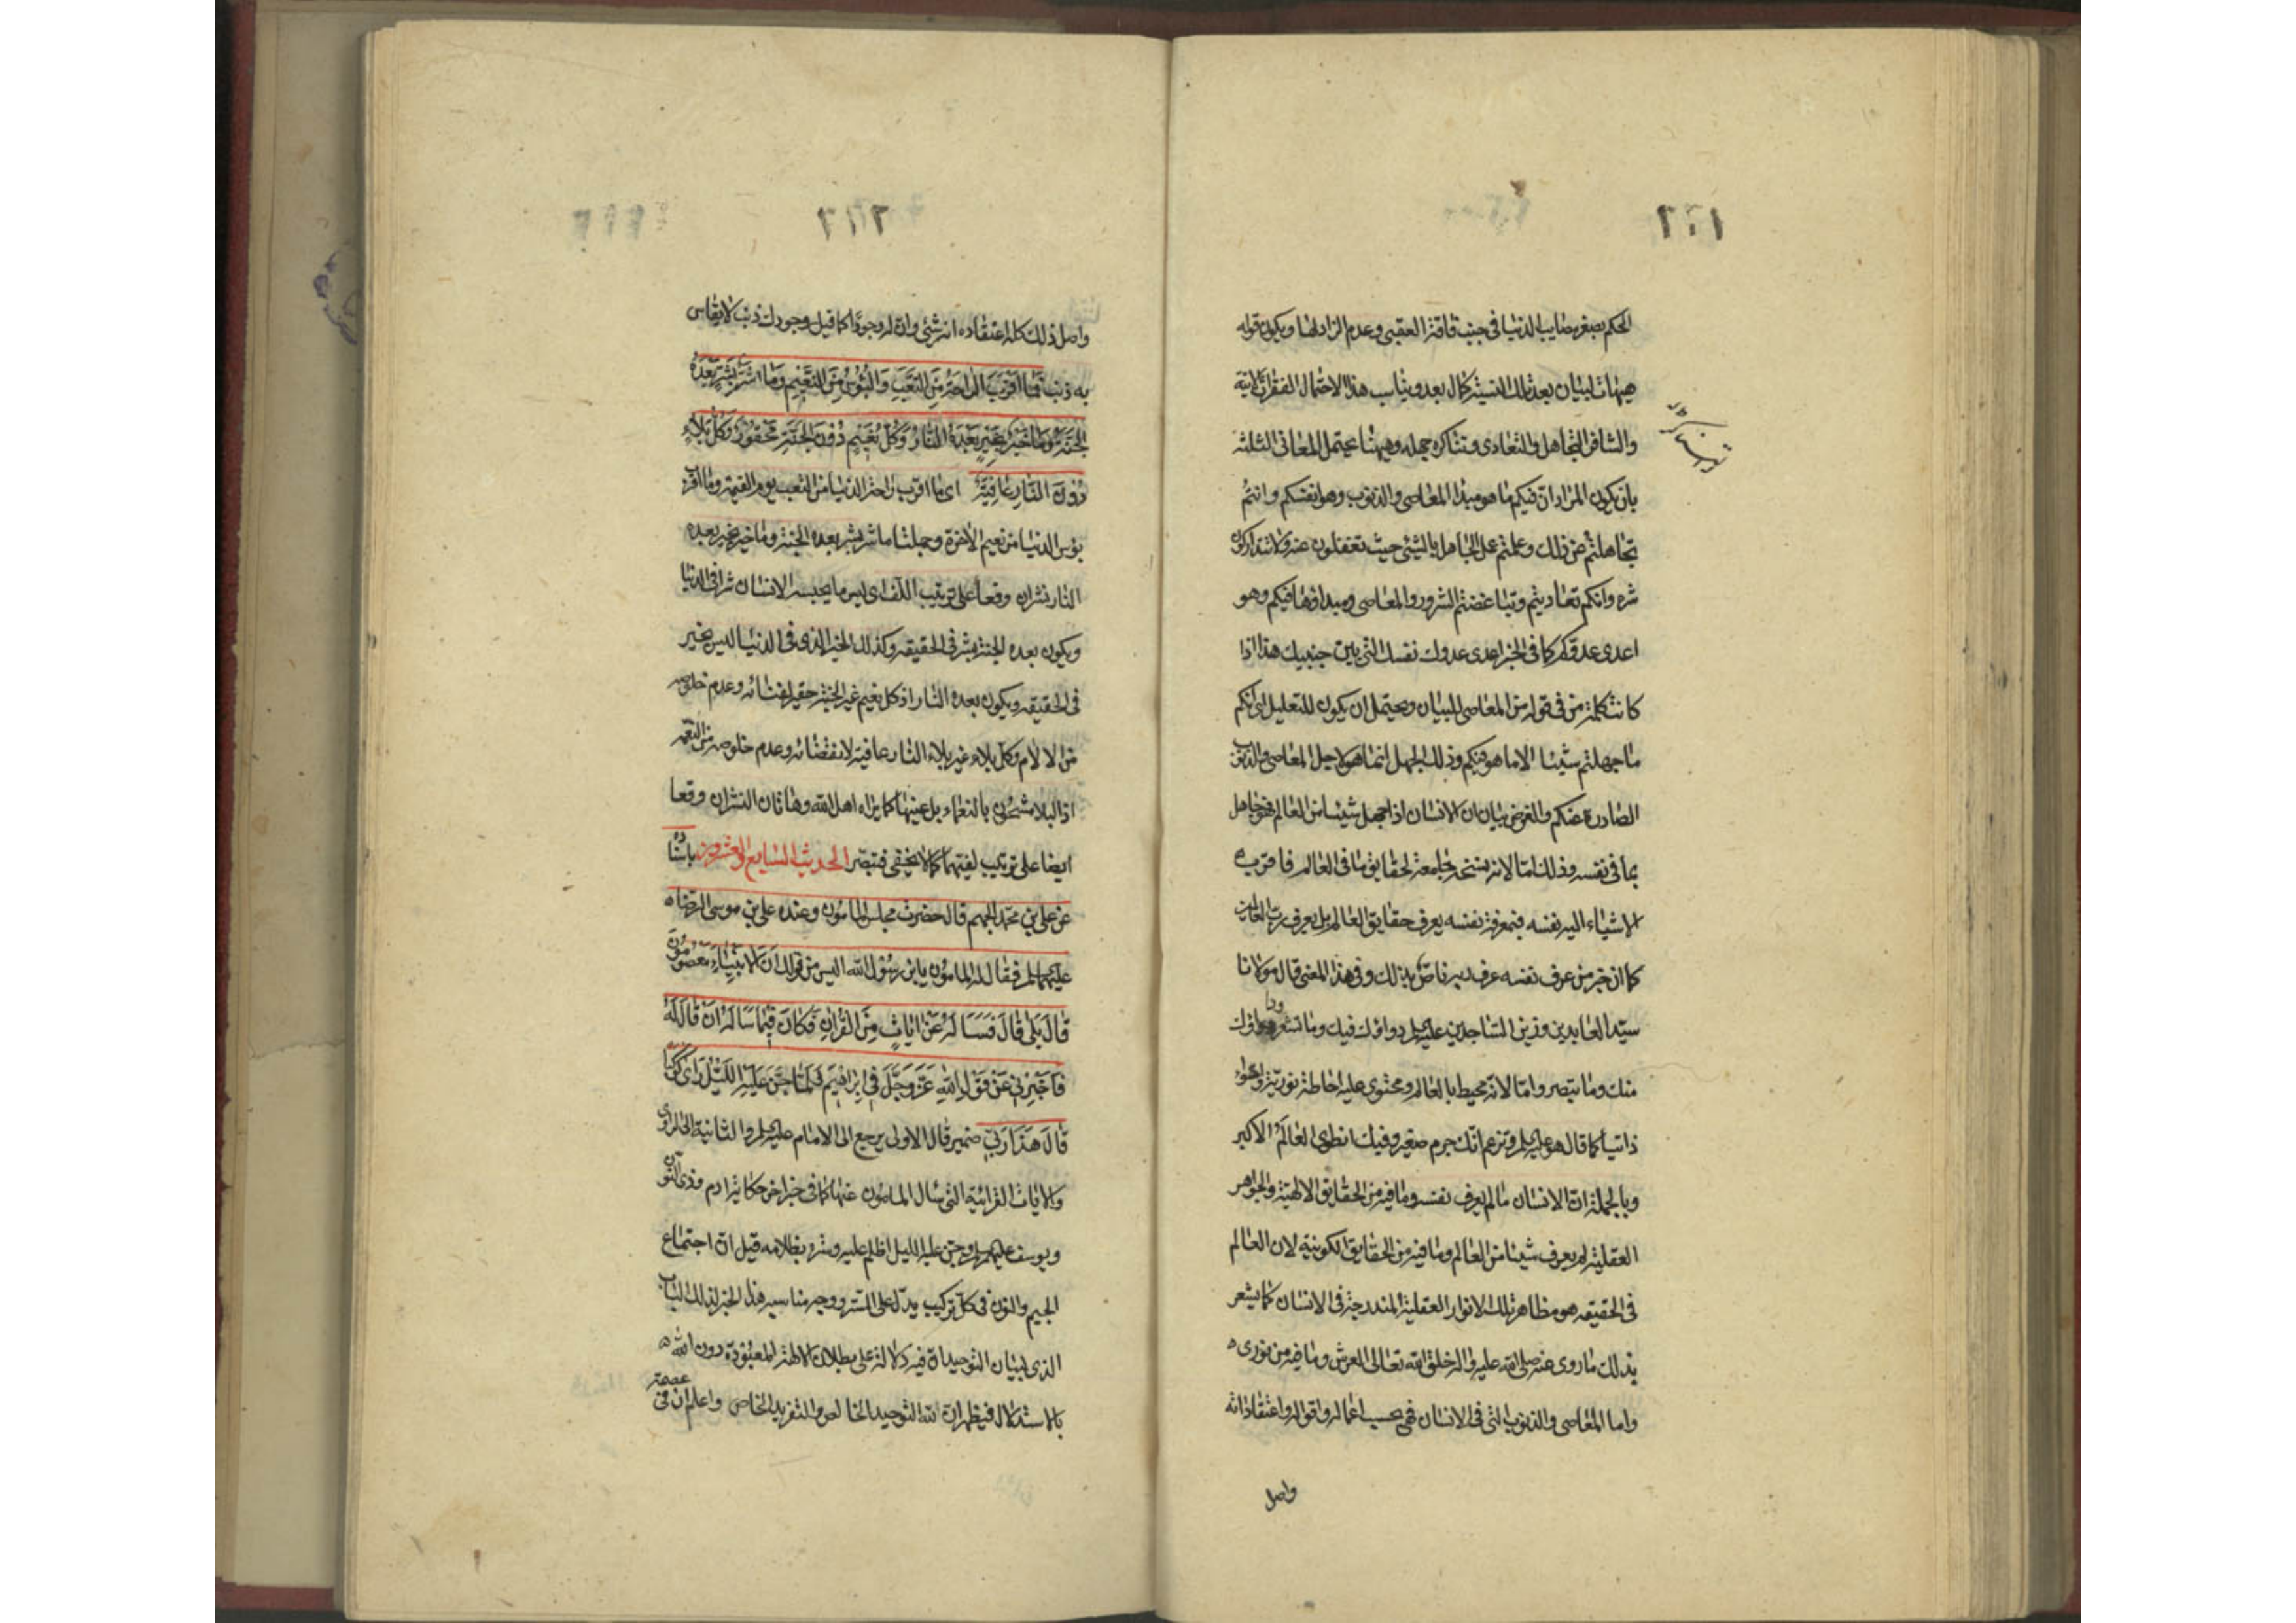 الحكم بصغر مصايب الدنيا في جنب فاقة العقبى وعدم الزاد لها ويكون قوله
هيهات لبيان بعد تلك النسبة كمال بعد ويناسب هذا الاحتمال الفقرات الاتية
والتجاهل والتعادي وتناكره جملة وهيهنا يحتمل المعاني الثلثة
بان يكون المراد ان فيكم ما هو مبدأ المعاصي والذنوب وهو انفسكم وانتم
تجاهلتم عن ذلك وعلمتم عمل الجاهل بالشيء حيث تغفلون عنه ولا تتداركون
شره وانكم تعاديتم وتباغضتم الشرور والمعاصي ومبداؤها فيكم وهو
اعدى عدوكم كما في الخبر اعدى عدوك نفسك التي بين جنبيك هذا اذا
كانت كلمة من في قوله من المعاصي للبيان ويحتمل ان يكون للتعليل اي انكم
ما جهلتم شيئا الا ما هو فيكم وذلك الجهل انما هو لاجل المعاصي والذنوب
الصادرة عنكم والغرض بيان ان الانسان اذا جهل شيئا من العالم فهو جاهل
بما في نفسه وذلك اما لانه نسخة جامعة لحقايق ما في العالم فاقرب
الاشياء اليه نفسه فبمعرفة نفسه يعرف حقايق العالم بل يعرف رب العالمين
كما ان خبر من عرف نفسه عرف ربه ناص بذلك وفي هذا المعنى قال مولانا
سيد العابدين وزين الساجدين عليه السلم دواؤك فيك وما تشعر وداؤك
منك وما تبصر واما لانه محيط بالعالم ومحتوى عليه احاطة نورية واحتواء
ذاتيا كما قال هو عليه السلم وتزعم انك جرم صغير وفيك انطوى العالم الاكبر
وبالجملة ان الانسان ما لم يعرف نفسه وما فيه من الحقايق الالهية والجواهر
العقلية لم يعرف شيئا من العالم وما فيه من الحقايق الكونية لان العالم
في الحقيقه هو مظاهر تلك الانوار العقلية المندرجة في الانسان كما يشعر
بذلك ما روى عنه صلى الله عليه واله خلق الله تعالى العرش وما فيه من نوري
واما المعاصي والذنوب التي في الانسان فهي بحسب اعماله واقواله واعتقاداته
واصل
واصل ذلك كله اعتقاده انه شيء وان له وجودا كما قيل وجودك ذنب لا يقاس
به ذنب فما اقرب الراحة من التعب والبؤس من النعيم وما شر بشر بعده
الجنة وما خير بخير بعده النار وكل نعيم دون الجنة محقور وكل بلاء
دون النار عافية اي ما اقرب راحة الدنيا من التعب يوم القيمة وما اقرب
بؤس الدنيا من نعيم الاخرة وجملتا ما شر بشر بعده الجنة وما خير بخير بعده
النار نشران وقعا على ترتيب اللف اي ليس ما يحسبه الانسان شرا في الدنيا
ويكون بعده الجنة بشر في الحقيقه وكذلك الخير الذي في الدنيا ليس بخير
في الحقيقه ويكون بعده النار اذ كل نعيم غير الجنة حقير لفنائه وعدم خلوصه
من الالام وكل بلاء غير بلاء النار عافية لانقضائه وعدم خلوصه من النعمة
اذ البلا مشحون بالنعماء بل عينها كما يراه اهل الله وهاتان النشران وقعا
ايضا على ترتيب لفيهما كما لا يخفى فتبصر الحديث السابع والعشرون باسناده
عن علي بن محمد الجهم قال حضرت مجلس المامون وعنده علي بن موسى الرضا
عليهما السلم فقال له المامون يا بن رسول الله اليس من قولك ان الانبياء معصومون
قال بلى قال فساله عن ايات من القران فكان فيما ساله ان قال له
فاخبرني عن قول الله عز وجل في ابراهيم فلما جن عليه الليل راى كوكبا
قال هذا ربي ضمير قال الاولى يرجع الى الامام عليه السلم والثانية الى الراوي
والايات القرانية التي سال المامون عنها كما في خبر اخر حكاية ادم وذي النون
ويوسف عليهم السلم وجن عليه الليل اظلم عليه وستره بظلامه قيل ان اجتماع
الجيم والنون في كل تركيب يدل على الستر ووجه مناسبه هذا الخبر لذلك الباب
الذي لبيان التوحيد ان فيه دلالة على بطلان الالهة المعبودة دون الله
بالاستدلال فيظهر ان لله التوحيد الخالص والتفريد الخاص واعلم ان في عصمة